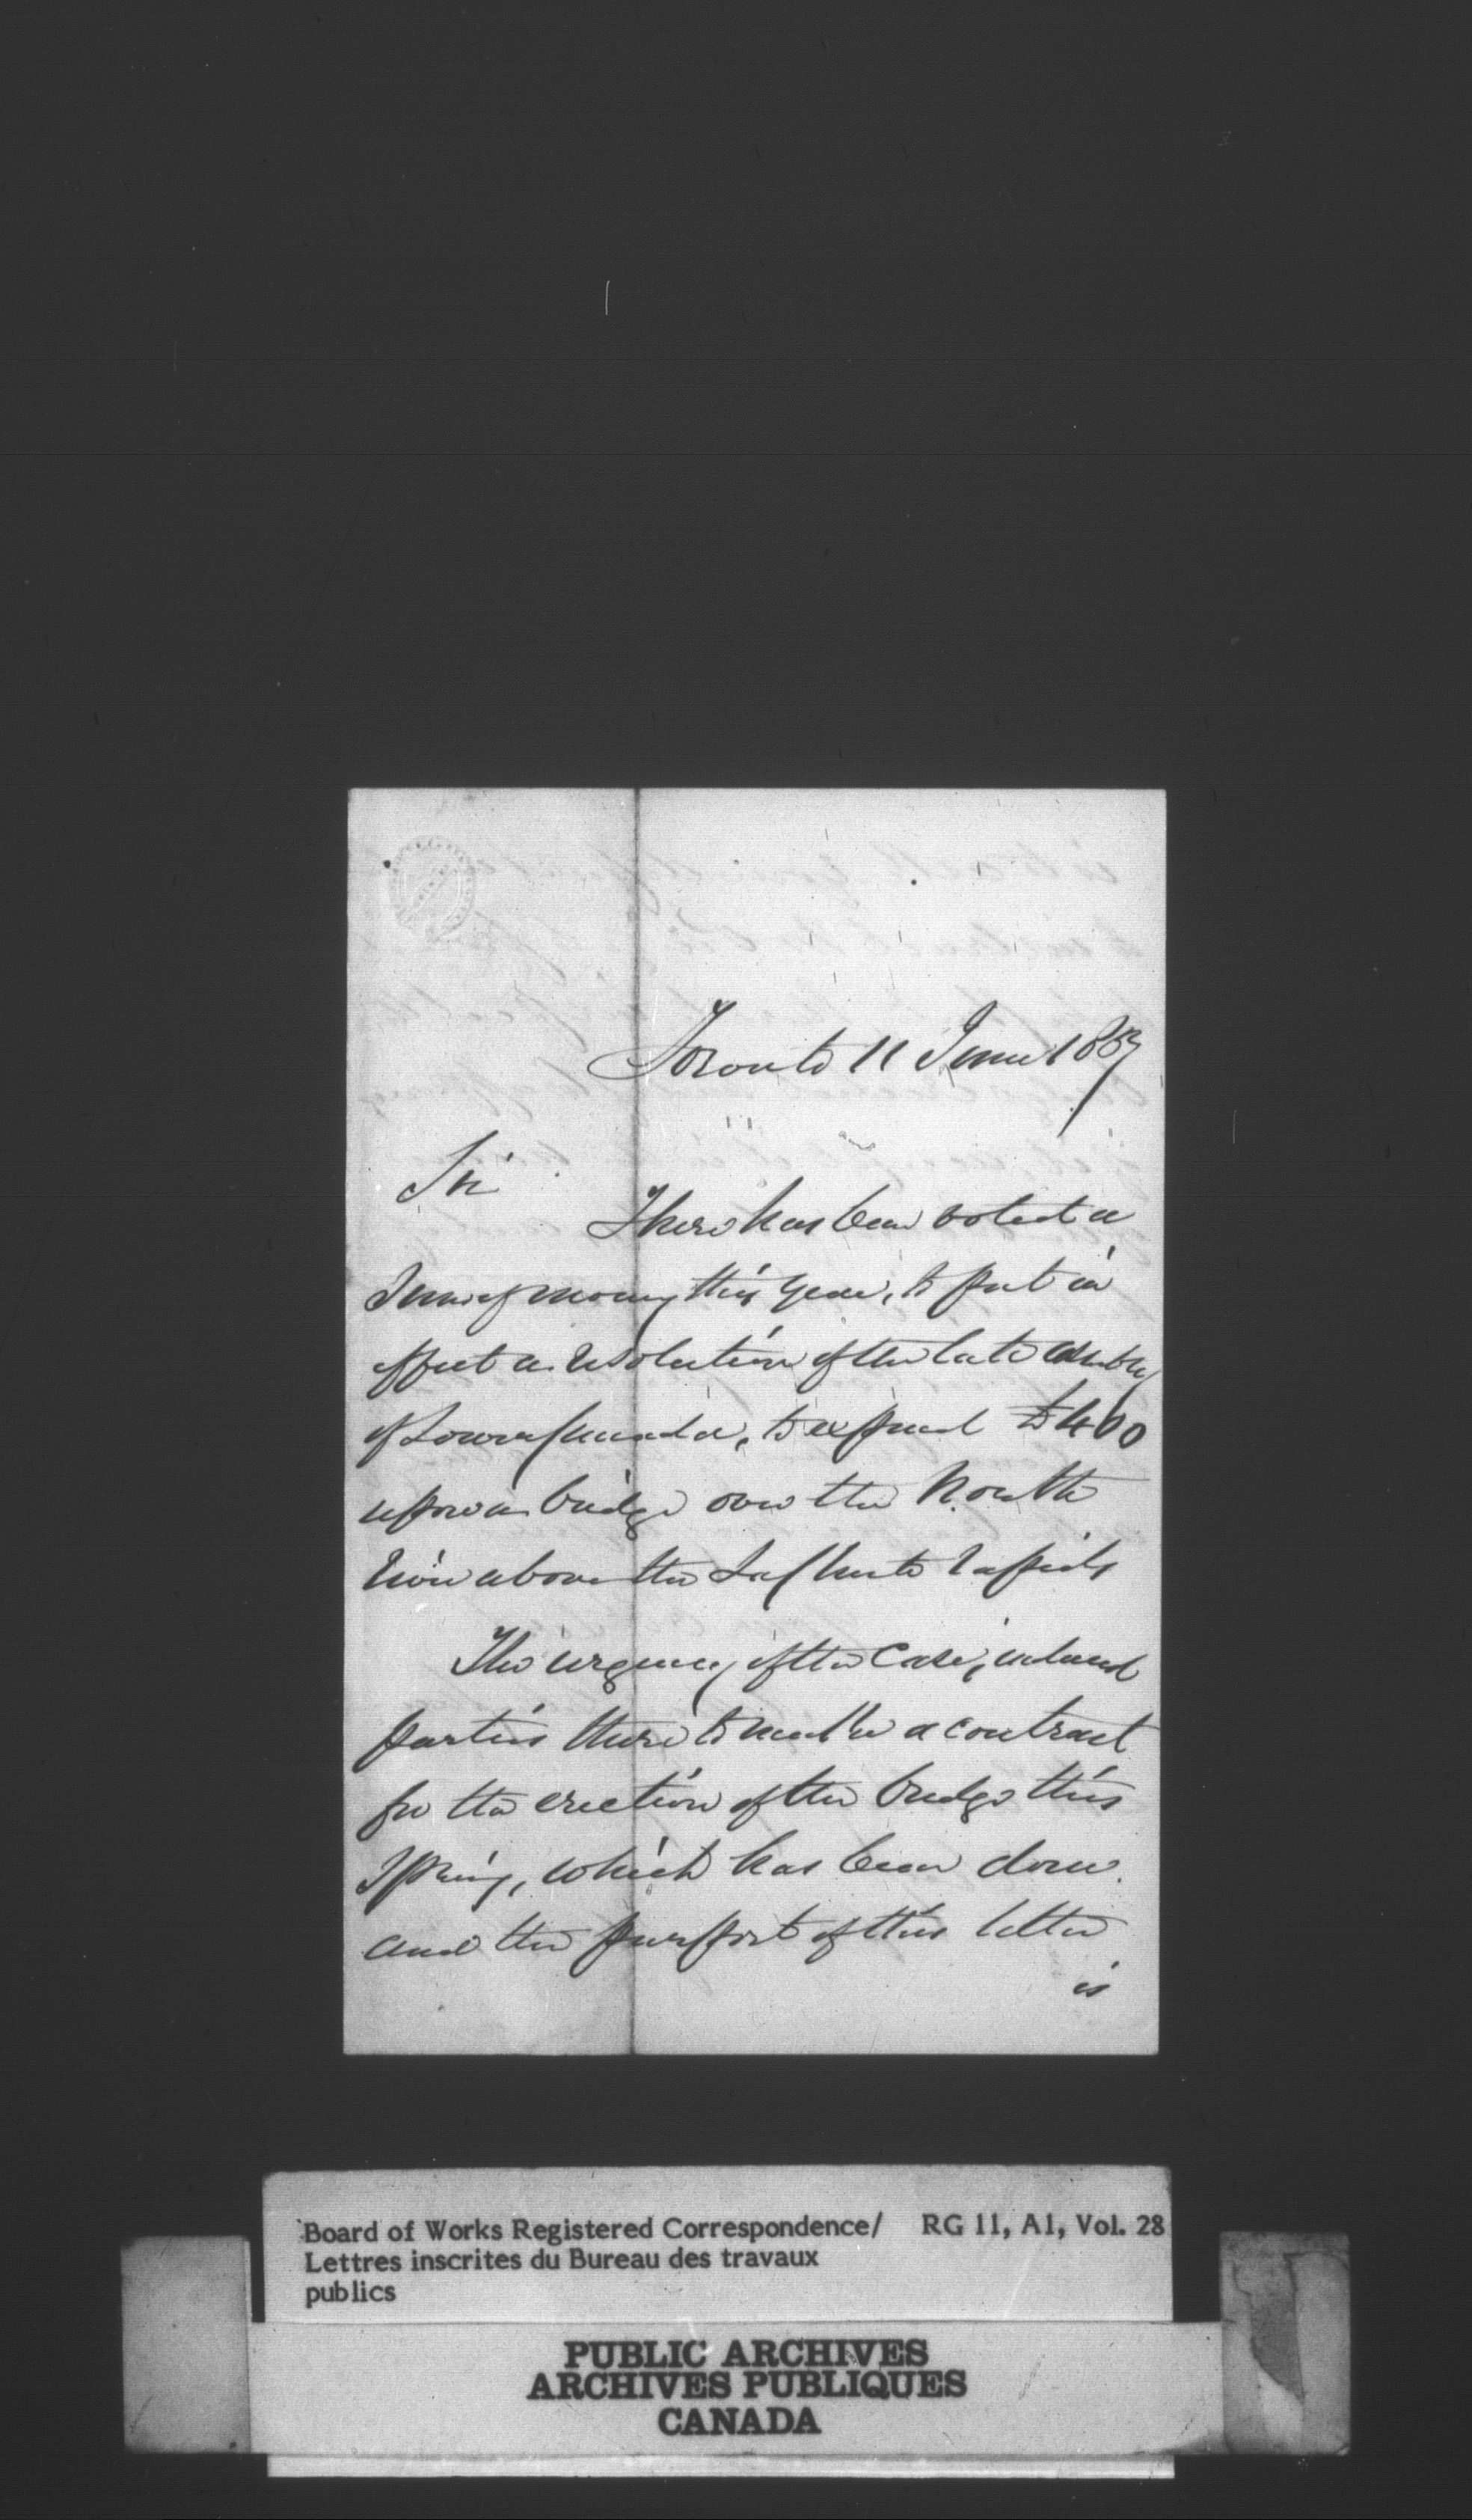 Toronto 11 June 1857
Sir
There has been voted a
Sum of money this year, to put in
effect a resolution of the late assembly
of Lower Canada, to expend £400
upon a bridge over the North
River above the La Chute Rapids
The urgency of the Case, induced
parties there to make a contract
for the erection of the bridge this
Spring, which has been done.
and the purport of this letter
is
Board of Works Registered Correspondence/ RG 11, A1, Vol. 28
Lettres inscrites du Bureau des travaux
publics
PUBLIC ARCHIVES
ARCHIVES PUBLIQUES
CANADA